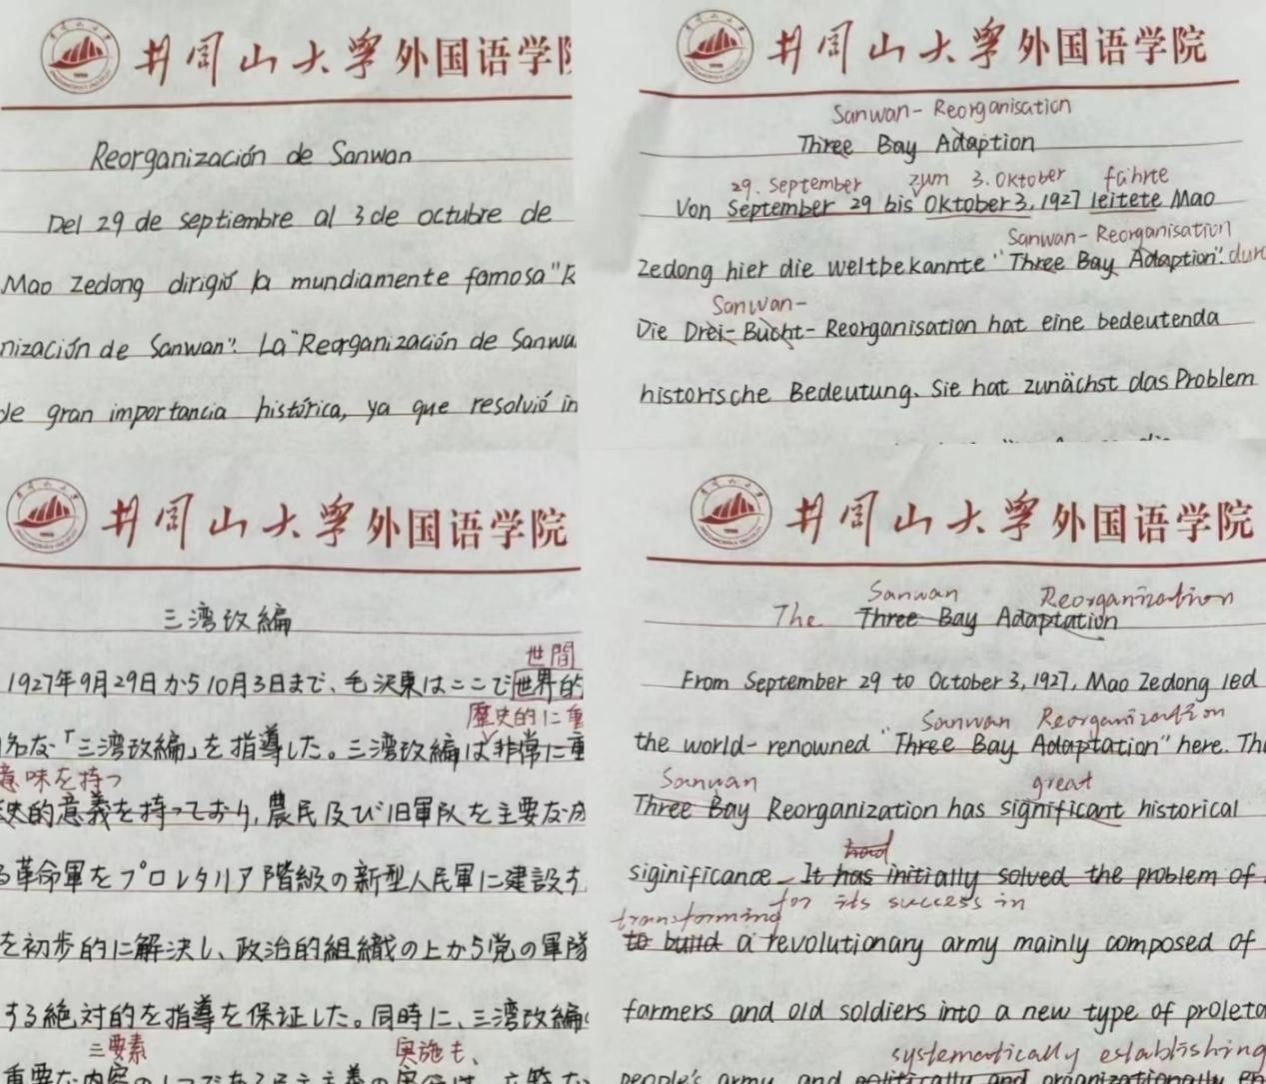 井冈山大学外国语学
Reorganización de Sanwan
Del 29 de septiembre al 3 de octubre de
Mao Zedong dirigió la mundiamente famosa "R
nización de Sanwan". La "Reorganización de Sanwa
de gran importancia histórica, ya que resolvió in
井冈山大学外国语学院
Sanwan-Reorganisation
Three Bay Adaption
29. September zum 3. Oktober führte
Von September 29 bis Oktober 3, 1927 leitete Mao
Sanwan-Reorganisation
Zedong hier die weltbekannte "Three Bay Adaption". durc
Sanwan-
Die Drei-Bucht-Reorganisation hat eine bedeutenda
historische Bedeutung. Sie hat zunächst das Problem
井冈山大学外国语学院
三湾改編
世間
1927年9月29日から10月3日まで、毛沢東はここで世界的
歴史的に重
名な「三湾改編」を指導した。三湾改編は非常に重
意味を持つ
史的意義を持っており,農民及び旧軍队を主要な成
る革命軍をプロレタリア階級の新型人民軍に建設す
を初歩的に解決し、政治的組織の上から党の軍隊
する絶対的を指導を保証した。同時に、三湾改編
三要素 実施も、
重要な内容の1つである民主主義の
井冈山大学外国语学院
Sanwan Reorganization
The Three Bay Adaptation
From September 29 to October 3, 1927, Mao Zedong led
Sanwan Reorganization
the world-renowned "Three Bay Adaptation" here. The
Sanwan great
Three Bay Reorganization has significant historical
had
siginificance. It has initially solved the problem of
transforming for its success in
to build a revolutionary army mainly composed of
farmers and old soldiers into a new type of proleta
systematically establishing
people's army, and politically and organizationally en